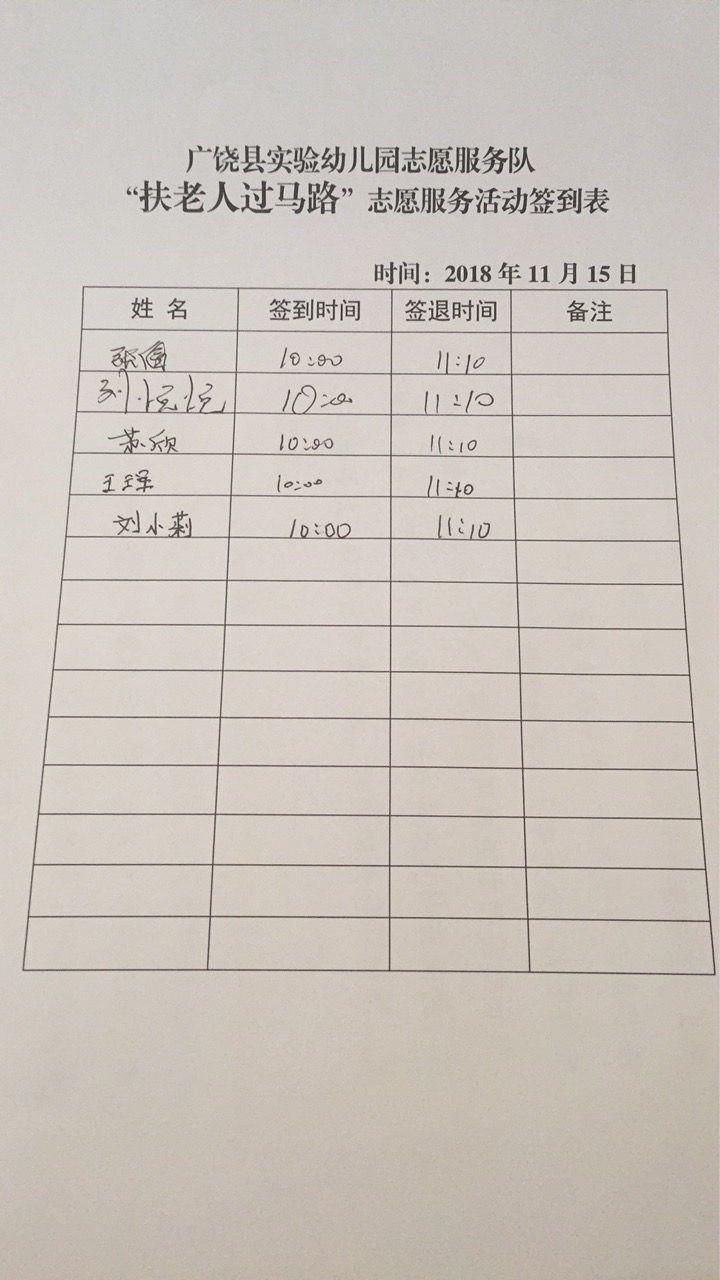 广饶县实验幼儿园志愿服务队
“扶老人过马路”志愿服务活动签到表
时间：2018 年 11 月 15 日
姓 名 签到时间 签退时间 备注
10:00 11:10
刘悦悦 10:00 11:10
苏欣 10:00 11:10
王 10:00 11:10
刘小莉 10:00 11:10